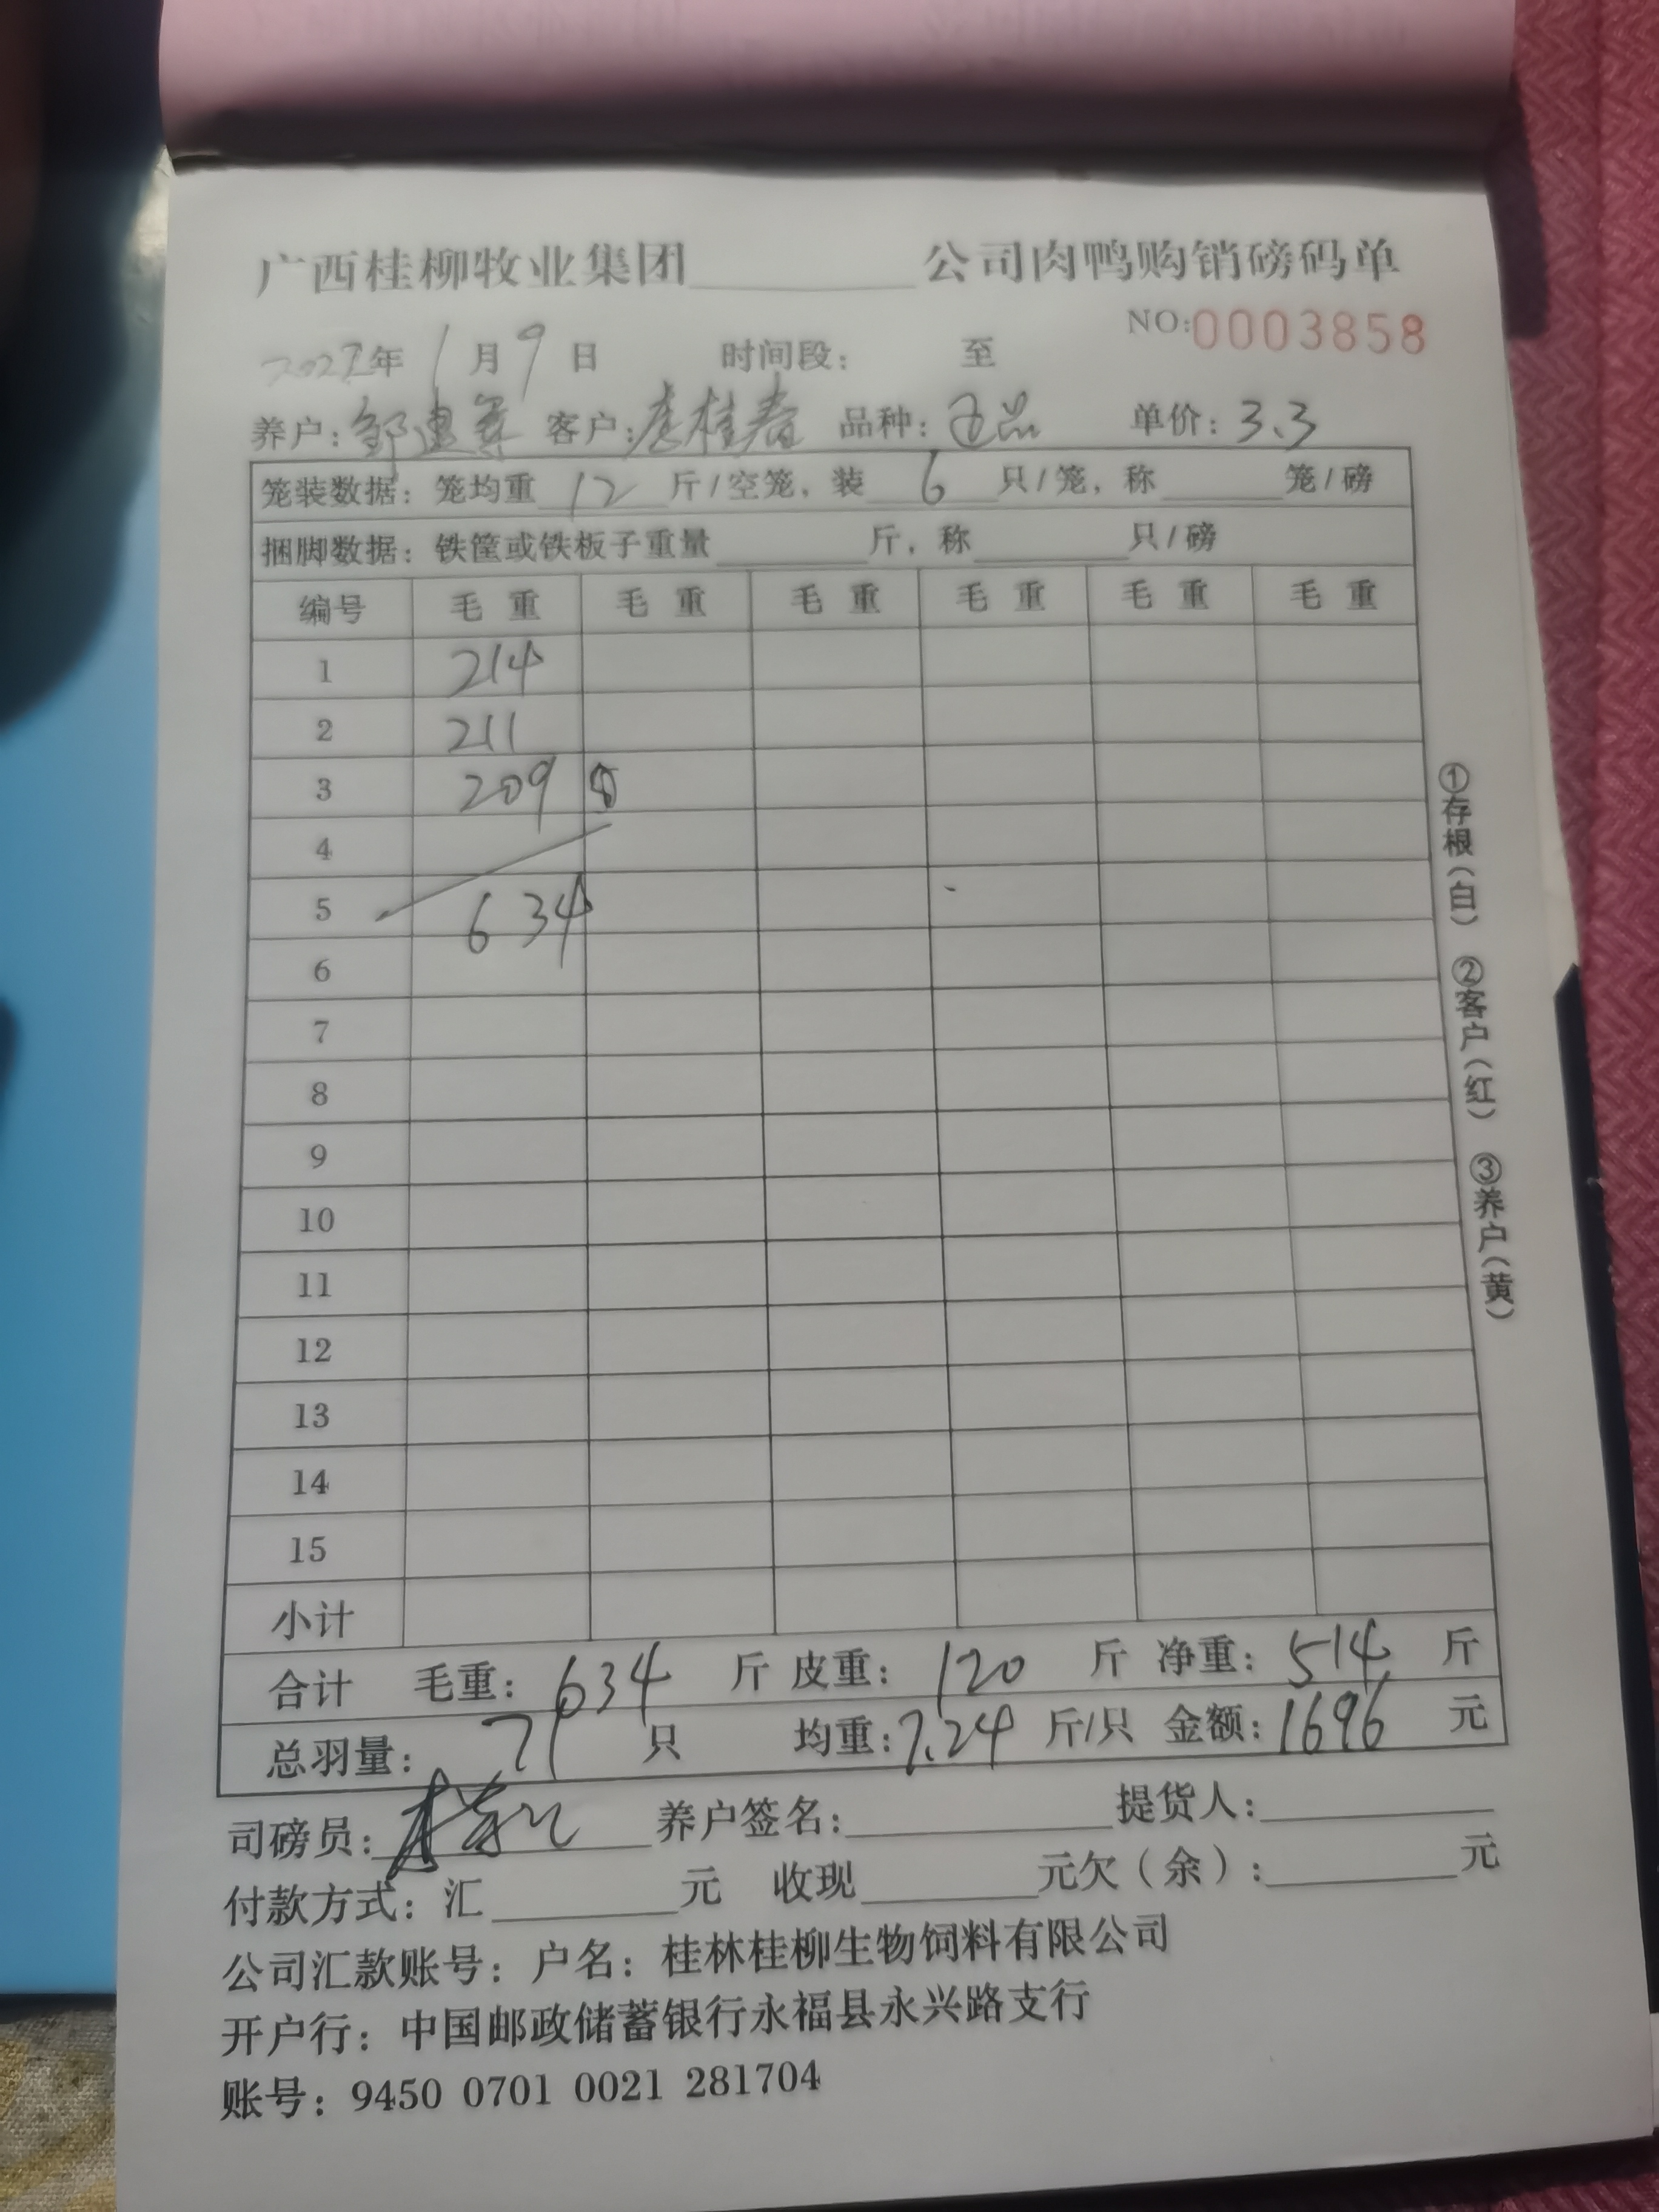 广西桂柳牧业集团 公司肉鸭购销磅码单
NO:0003858
2022年1月9日 时间段: 至
养户: 客户:李桂春 品种: 单价:3.3
笼装数据: 笼均重 12 斤/空笼, 装 6 只/笼, 称 笼/磅
捆脚数据: 铁筐或铁板子重量 斤, 称 只/磅
编号 毛重 毛重 毛重 毛重 毛重 毛重
1 214
2 211
3 209
4
5 634
6
7
8
9
10
11
12
13
14
15
小计
合计 毛重: 634 斤 皮重: 120 斤 净重: 514 斤
总羽量: 71 只 均重: 7.24 斤/只 金额: 1696 元
司磅员: 养户签名: 提货人:
付款方式: 汇 元 收现 元欠(余): 元
公司汇款账号: 户名: 桂林桂柳生物饲料有限公司
开户行: 中国邮政储蓄银行永福县永兴路支行
账号: 9450 0701 0021 281704
①存根(白) ②客户(红) ③养户(黄)